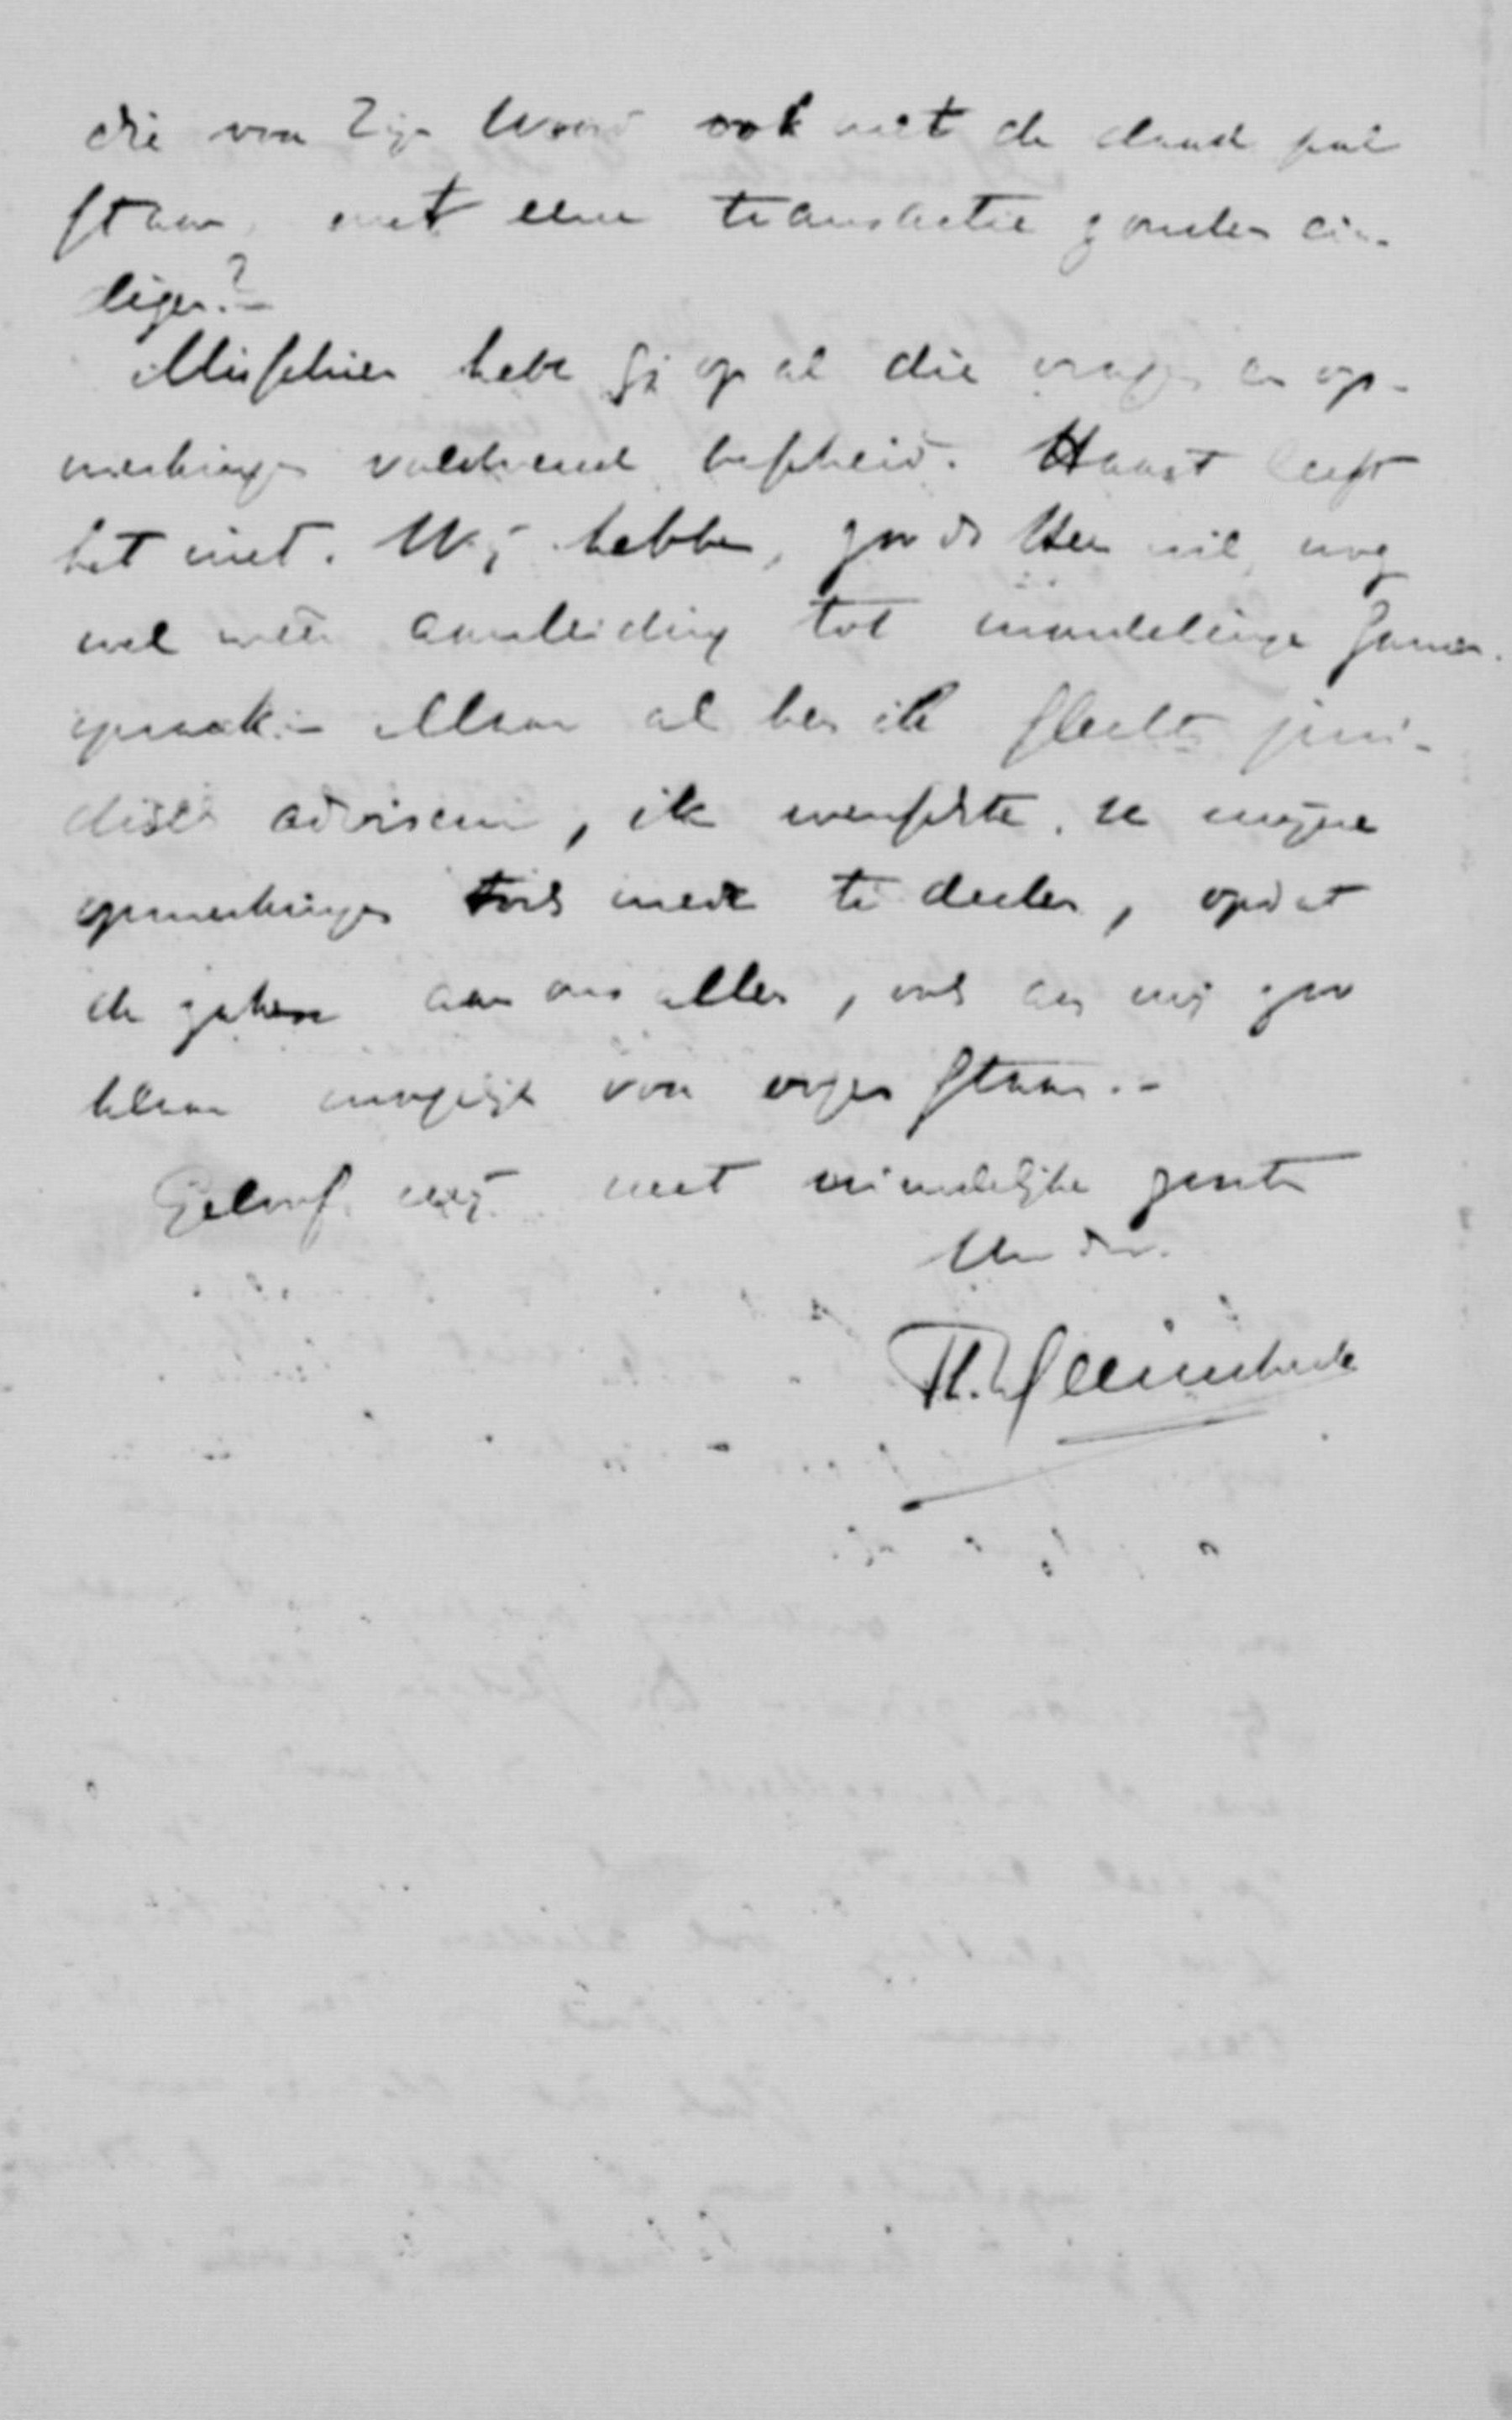 die voor Zijn Woord ook met de daad pal
staan, met eene transactie zouden ein-
digen?-
Misschien hebt gij op al die vragen en op-
merkingen voldoend bescheid. Haast heeft
het niet. Wij hebben, zoo de Heer wil, nog
wel weêr aanleiding tot mondelinge samen-
spraak.- Maar al ben ik slechts juri-
disch adviseur, ik wenschte u mijne
opmerkingen toch mede te deelen, opdat
de zaken aan ons allen, ook aan mij zoo
klaar mogelijk voor oogen staan.-
Geloof mij met vriendelijke groete
Uw dr.
Th. Heemskerk